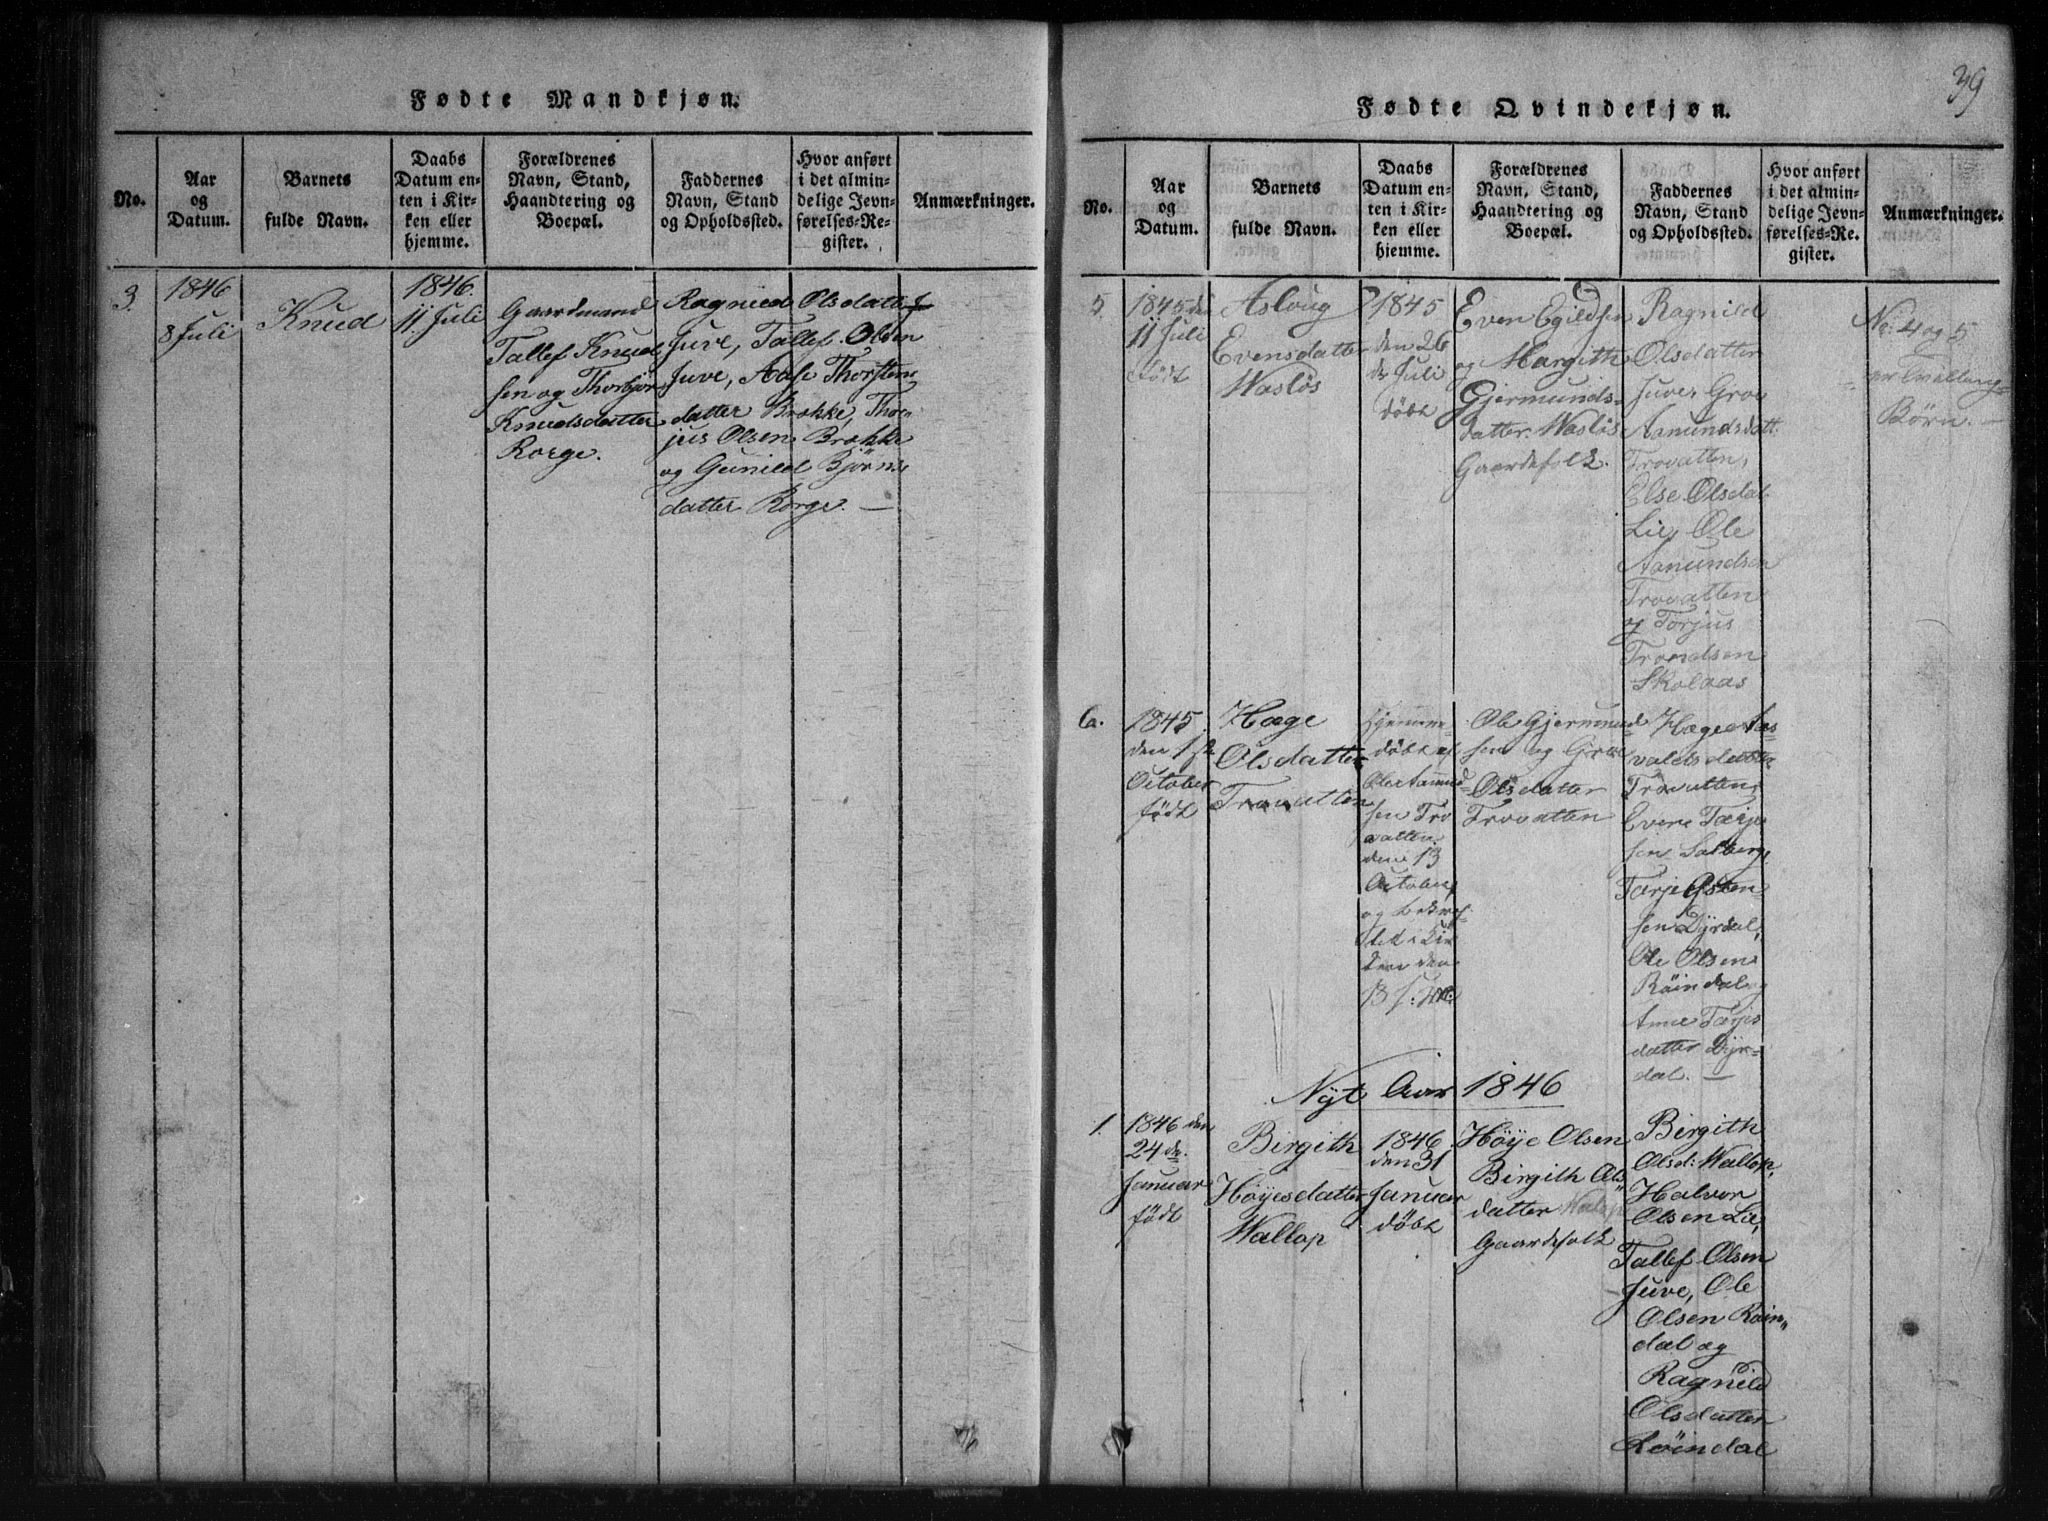 Fødte Mandkjøn.
No.
Aar
og
Datum.
Barnets
fulde Navn.
Daabs
Datum en-
ten i Kir-
ken eller
hjemme.
Forældrenes
Navn, Stand,
Haandtering og
Boepæl.
Faddernes
Navn, Stand
og Opholdssted.
Hvor anført
i det almin-
delige Jevn-
førelses-Re-
gister.
Anmærkninger.
3.
1846
8 Juli
Knud
1846.
11. Juli
Gaardmand
Tallef Knud
sen og Thorbjør
Knudsdatter
Rorge.
Ragnild Olsdatter
Juve, Tallef Olsen
Juve, Aase Thorsten
datter Brokke, Thor
jus Olsen Brokke
og Gunild Bjørns
datter Rorge. —
39
Fødte Qvindekjøn.
No.
Aar
og
Datum.
Barnets
fulde Navn.
Daabs
Datum en-
ten i Kir-
ken eller
hjemme.
Forældrenes
Navn, Stand,
Haandtering og
Boepæl.
Faddernes
Navn, Stand
og Opholdssted.
Hvor anført
i det almin-
delige Jevn-
førelses-Re-
gister.
Anmærkninger.
5.
1845 den
11 Juli
født
Asloug
Evensdatter
Wasløs
1845
den 26
de Juli
døbt
Even Egildsen
og Margith
Gjermunds-
datter Wasløs
Gaardefolk.
Ragnild
Olsdatter
Juve, Groe
Aanundsdatt.
Trovatten,
Else Olsdat
Lie, Ole
Aanundsen
Trovatten
og Torjus
Trondsen
Skolaas
No: 4 og 5
er Tvilling-
Børn. —
6.
1845
den 1ste
October
født
Hæge
Olsdatter
Trovatten
Hjemme-
døbt af
Ole Aanund-
sen Tro
vatten
den 13
October,
og
den
13
Ole Gjermund
sen og Groe
Olsdatter
Trovatten
Hæge Aas-
valdsdatter
Trovatten,
Even Tarje
sen
Tarje Østen
sen Dyrdal,
Ole Olsen
Röindal og
Anne Tarjes
datter Dyr-
dal. —
Nyt Aar 1846
1.
1846 den
24 de
Januar
født
Birgith
Høyesdatter
Wallop
1846
den 31
Januar
døbt
Høye Olsen
Birgith Ols"
datter Wallop
Gaardefolk
Birgith
Olsd: Wallop,
Halvor
Olsen Lie,
Tallef Olsen
Juve, Ole
Olsen Røin"
dal og
Ragnild
Olsdatter
Røindal